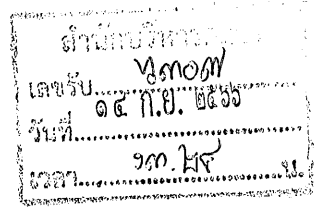 สำนักบริหาร
เลขรับ ๖๓๐๗
วันที่ ๑๔ ก.ย. ๒๕๖๖
เวลา ๑๓.๒๙ น.